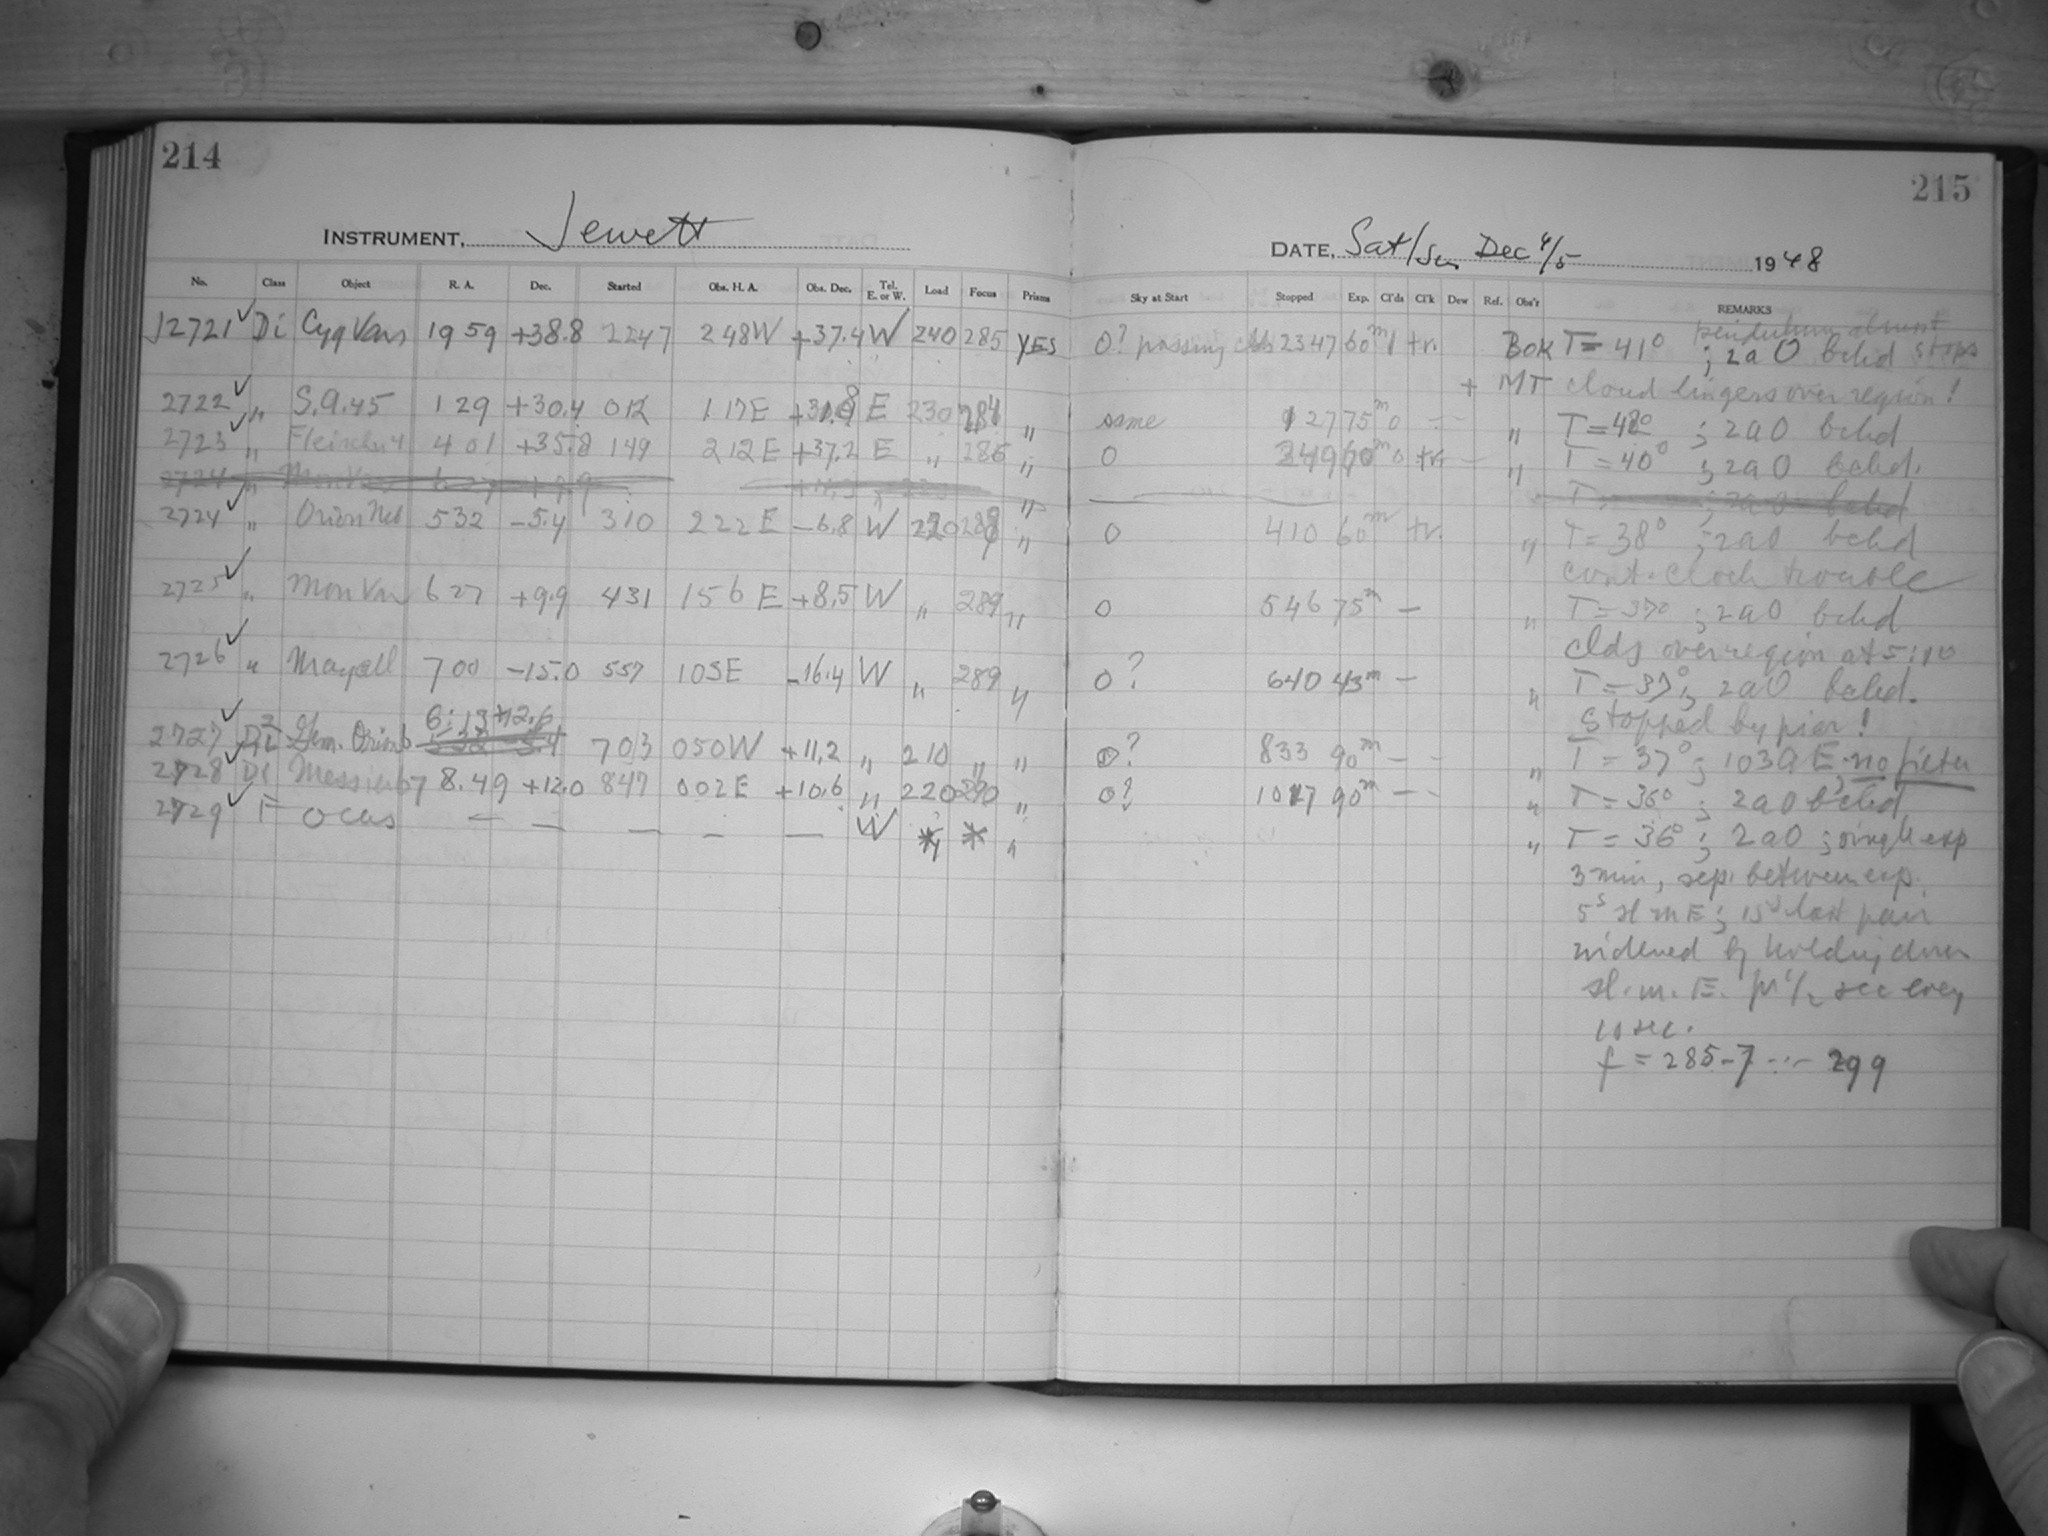 214
215
INSTRUMENT, Jewett
DATE, Sat/Sun Dec 4/5 1948
No. Class Object R. A. Dec. Started Obs. H. A. Obs. Dec. Tel. E. or W. Load Focus Prisms
Sky at Start Stopped Exp. Cl'ds Cl'k Dew Ref. Obs'r REMARKS
J2721 Di Cyg Vars 19 59 +38.8 2247 248W +37.4 W 240 285 YES 0? passing clds 2347 60m 1 tr. BOK T = 41° ; 2a0 bckd pendulum almost stops
+ MT cloud lingers over region!
2722 " S.A.45 1 29 +30.4 012 1 17E E 230 284 " same 127 75m 0 -- " ; 2a0 bckd
2723 " 4 01 +35.8 149 212E +37.2 E " 286 " 0 249 60m 0 tr. - " T = 40° ; 2a0 bckd.
2724 " Orion Neb 532 -5.4 310 222E -6.8 W 220 " 0 410 60m tr. " T = 38° ; 2a0 bckd
cont. clock trouble
2725 " Mon Var 627 +9.9 431 156 E +8.5 W " 289 " 0 546 75m - " T = 37° ; 2a0 bckd
clds over region at 5:10
2726 " Mayall 700 -15.0 557 103E -16.4 W " 289 " 0? 640 43m - " T = 37° ; 2a0 bckd.
Stopped by pier!
6:13 +12.6
2727 Di Gem. Orion b 703 050W +11.2 " 210 " " 0? 833 90m - - " T = 37° ; 103a E; no filter
2728 Di Messier 67 8.49 +12.0 847 002E +10.6 " 220 290 " 0? 1017 90m - - " T = 36° ; 2a0 bckd
2729 F ocus — — — — — W * * " " T = 36° ; 2a0 ; single exp
3 min, sep. between exp.
5s sl m E ; 15s last pair
widened by holding down
sl. m. E. for 1/2 sec every
10 sec.
f = 285-7 --- 299